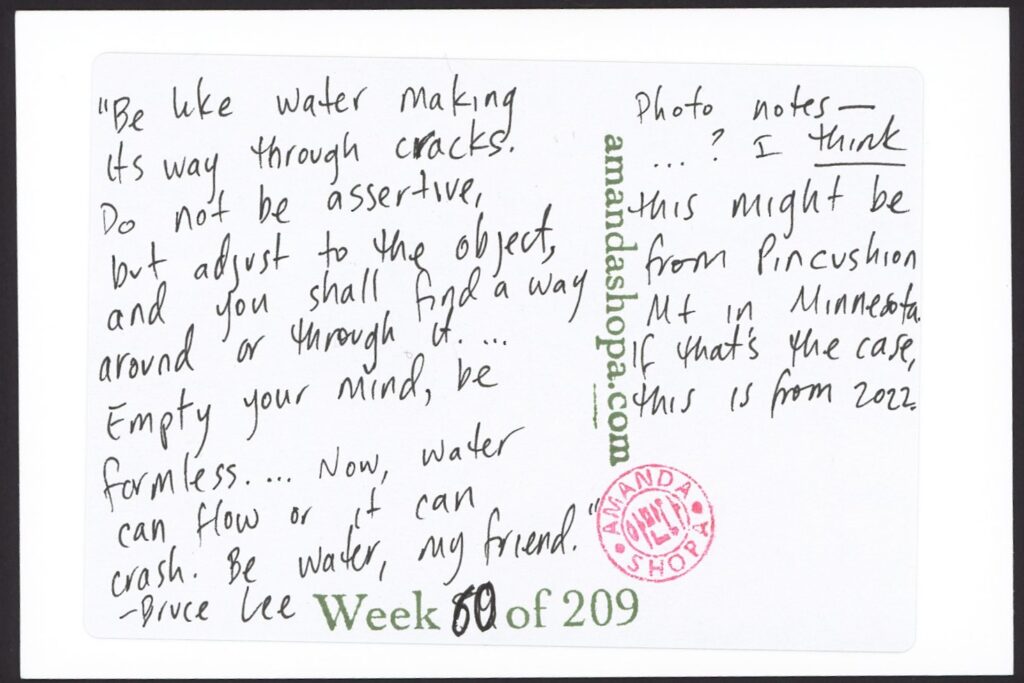 "Be like water making
its way through cracks.
Do not be assertive,
but adjust to the object,
and you shall find a way
around or through it. ...
Empty your mind, be
formless. ... Now, water
can flow or it can
crash. Be water, my friend."
-Bruce Lee
Week 60 of 209
Photo notes—
...? I think
this might be
from Pincushion
Mt in Minnesota.
If that's the case,
this is from 2022.
amandashopa.com
AMANDA
SHOPA